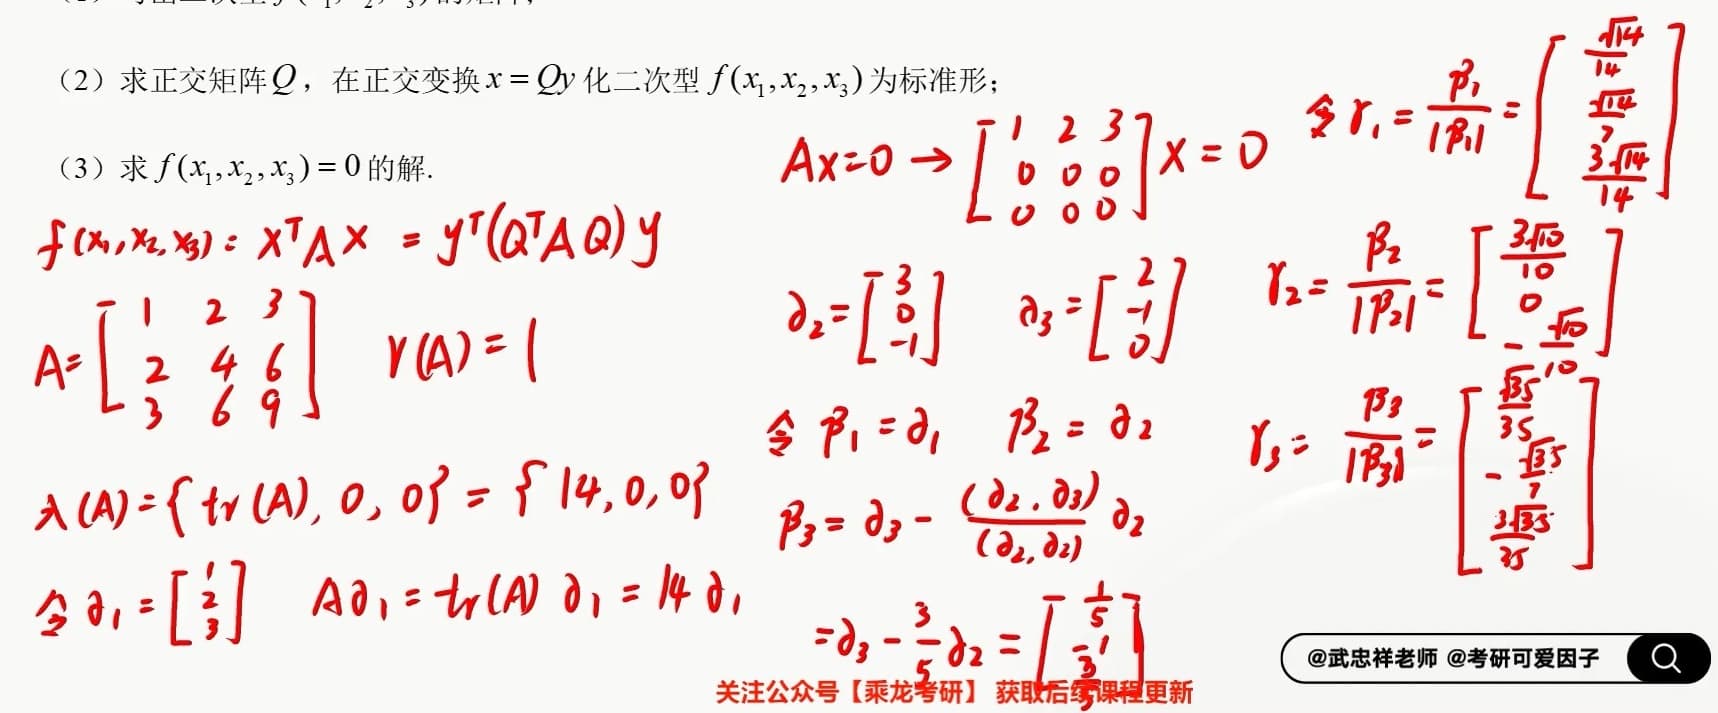 (2) 求正交矩阵Q，在正交变换 x = Qy 化二次型 f(x₁,x₂,x₃) 为标准形；
(3) 求 f(x₁,x₂,x₃) = 0 的解.
f(x₁,x₂,x₃) = XᵀAX = yᵀ(QᵀAQ)y
A= [1 2 3
2 4 6
3 6 9] r(A) = 1
λ(A)={tr(A), 0, 0} = {14, 0, 0}
令 α₁ = [1
2
3] Aα₁ = tr(A) α₁ = 14 α₁
Ax=0 → [1 2 3
0 0 0
0 0 0] X = 0
α₂= [3
0
-1] α₃= [2
-1
0]
令 β₁ = α₁ β₂ = α₂
β₃ = α₃ - (α₂, α₃)/(α₂, α₂) α₂
=α₃ - 3/5 α₂ = [1/5
-1
3/5]
令 γ₁ = β₁/|β₁| = [√14/14
√14/7
3√14/14]
γ₂= β₂/|β₂| = [3√10/10
0
-√10/10]
γ₃= β₃/|β₃| = [√35/35
-√35/7
3√35/35]
@武忠祥老师 @考研可爱因子
关注公众号【乘龙考研】 获取后续课程更新